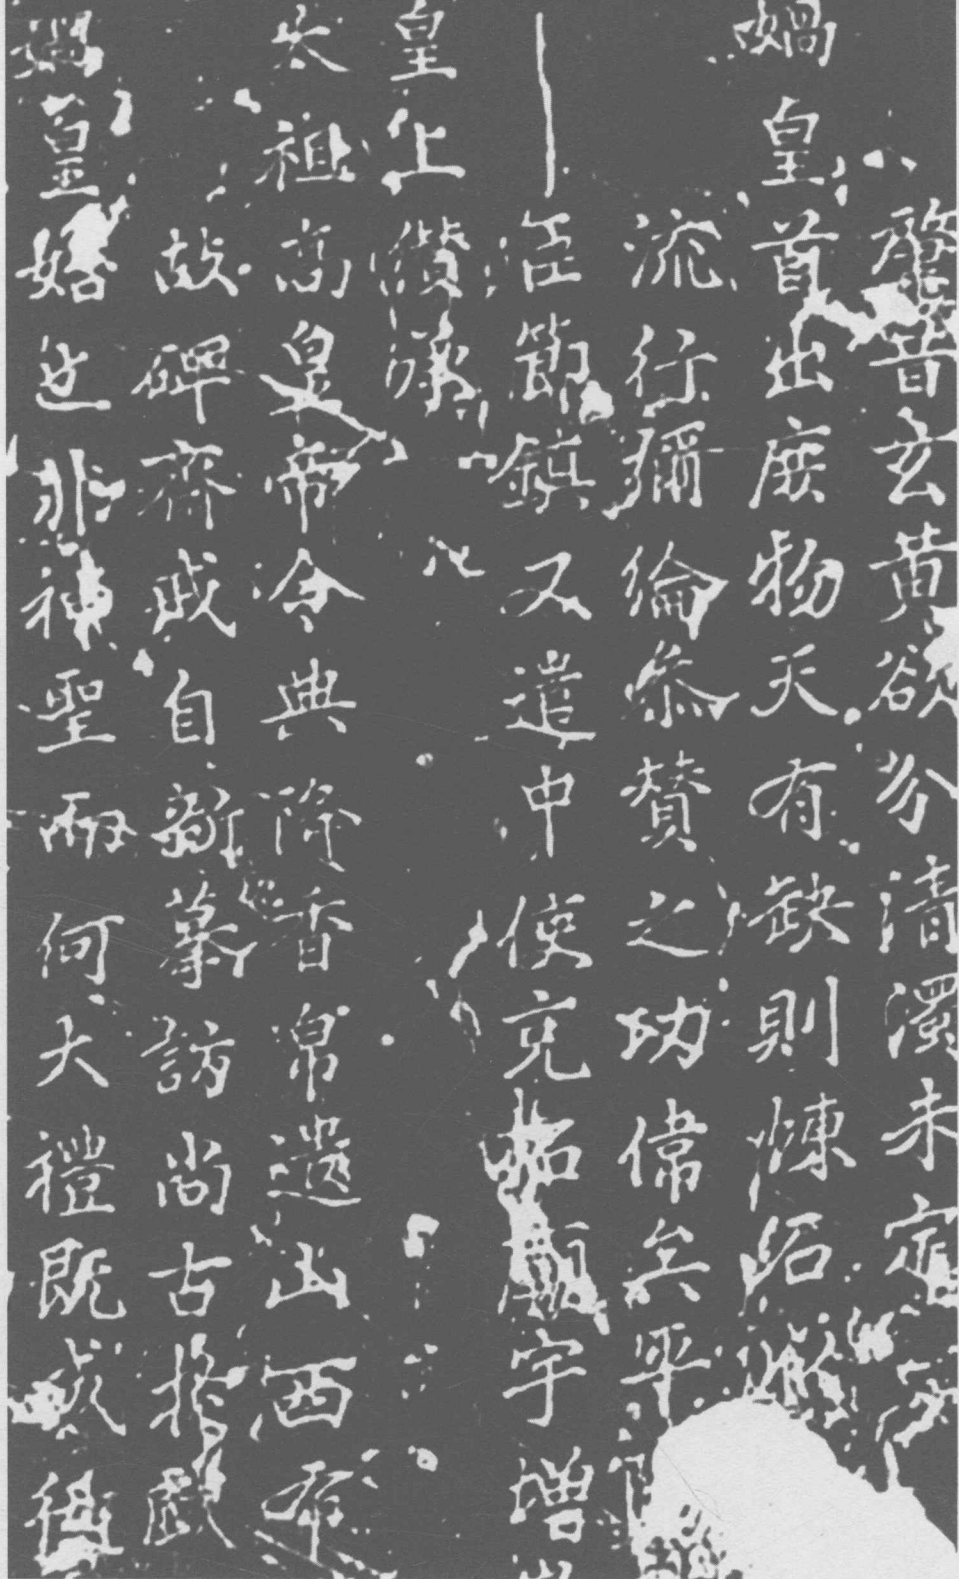 肇昔玄黄欲分清濁未定
媧皇首出庶物天有缺則煉石
流行彌綸叅賛之功偉矣平
臣節鎮又遣中使充拓廟宇增
皇上纘承
太祖高皇帝令典降香帛遣山西布
故碑齋戒自新摹訪尚古
媧皇始也非神聖而何大禮既